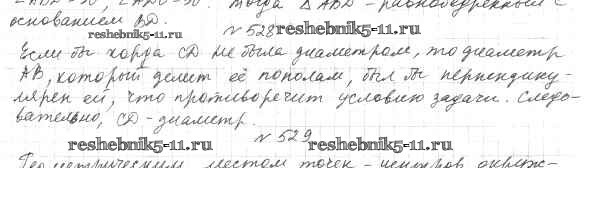 ∠ABD = 90°, ∠ABD = 90°. Тогда △ABD - равнобедренный с
основанием BD.
№ 528
reshebnik5-11.ru reshebnik5-11.ru
Если бы хорда CD не была диаметром, то диаметр
AB, который делит её пополам, был бы перпендику-
лярен ей, что противоречит условию задачи. Следо-
вательно, CD - диаметр.
№ 529
reshebnik5-11.ru reshebnik5-11.ru
Геометрическим местом точек - центров окруж-